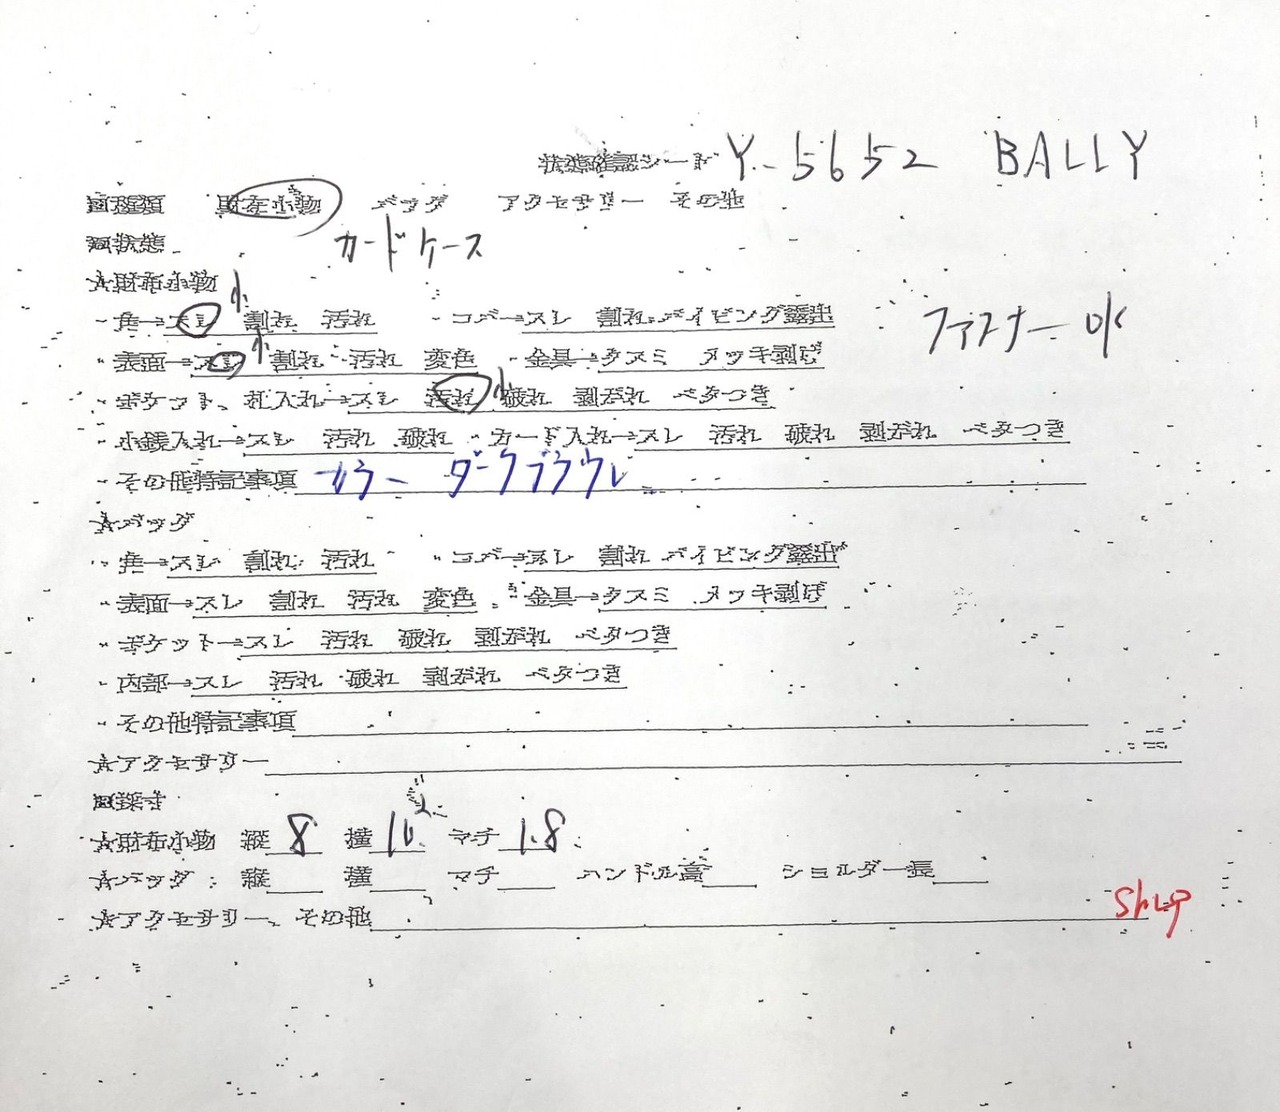 状態確認シート Y-5652 BALLY
■種類 財布小物 バッグ アクセサリー その他
■状態 カードケース
★財布小物
・角→スレ 小 割れ 汚れ ・コバ→スレ 割れ パイピング露出 ファスナー OK
・表面→スレ 小 割れ 汚れ 変色 ・金具→クスミ メッキ剥げ
・ポケット、札入れ→スレ 汚れ 小 破れ 剥がれ ベタつき
・小銭入れ→スレ 汚れ 破れ ・カード入れ→スレ 汚れ 破れ 剥がれ ベタつき
・その他特記事項 カラー ダークブラウン
★バッグ
・角→スレ 割れ 汚れ ・コバ→スレ 割れ パイピング露出
・表面→スレ 割れ 汚れ 変色 ・金具→クスミ メッキ剥げ
・ポケット→スレ 汚れ 破れ 剥がれ ベタつき
・内部→スレ 汚れ 破れ 剥がれ ベタつき
・その他特記事項
★アクセサリー
■採寸
★財布小物 縦 8 横 マチ 1.8
★バッグ 縦 横 マチ ハンドル高 ショルダー長
★アクセサリー、その他